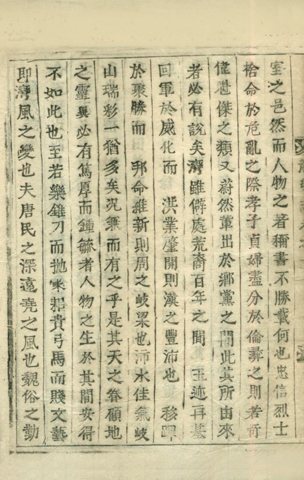 室之邑然而人物之著稱書不勝載何也忠信烈士
捨命於危亂之際孝子貞婦盡分於倫彛之則若奇
偉傑之類又蔚然輩出於鄕黨之間此其所由來
者必有說矣灣雖僻處荒裔百年之間 玉趾再
回軍於威化而 洪業肇開則漢之豐沛也 移蹕
於聚勝而 邦命維新則周之岐梁也沛水佳氣岐
山瑞彩一猶多矣况兼而有之乎是其天之眷顧地
之靈異必有篤厚而鍾毓者人物之生於其間安得
不如此也至若樂錐刀而抛家貴弓馬而賤文藝
即灣風之變也夫唐民之深遠堯之風也魏俗之勤